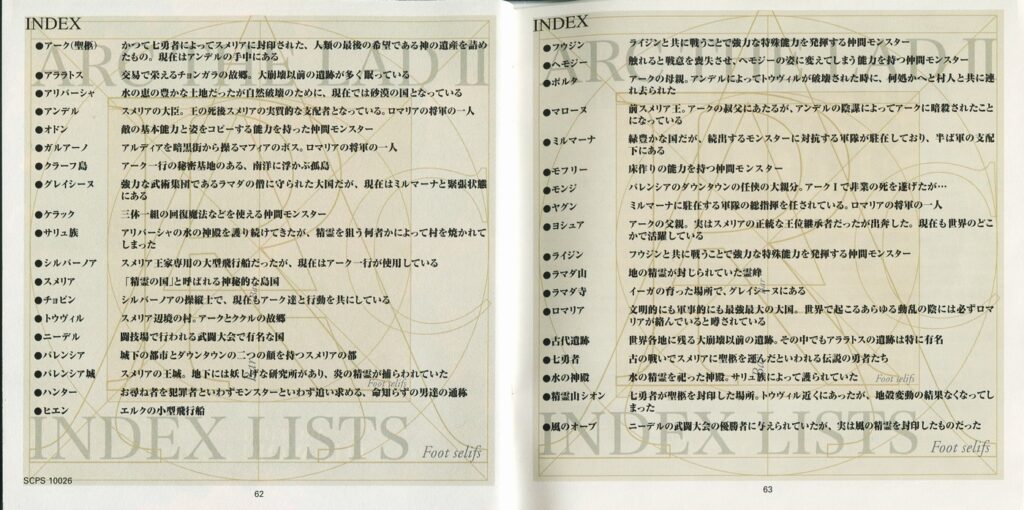 INDEX
●アーク(聖櫃) かつて七勇者によってスメリアに封印された、人類の最後の希望である神の遺産を詰め
たもの。現在はアンデルの手中にある
●アララトス 交易で栄えるチョンガラの故郷。大崩壊以前の遺跡が多く眠っている
●アリバーシャ 水の恵の豊かな土地だったが自然破壊のために、現在では砂漠の国となっている
●アンデル スメリアの大臣。王の死後スメリアの実質的な支配者となっている。ロマリアの将軍の一人
●オドン 敵の基本能力と姿をコピーする能力を持った仲間モンスター
●ガルアーノ アルディアを暗黒街から操るマフィアのボス。ロマリアの将軍の一人
●クラーフ島 アーク一行の秘密基地のある、南洋に浮かぶ孤島
●グレイシーヌ 強力な武術集団であるラマダの僧に守られた大国だが、現在はミルマーナと緊張状態
にある
●ケラック 三体一組の回復魔法などを使える仲間モンスター
●サリュ族 アリバーシャの水の神殿を護り続けてきたが、精霊を狙う何者かによって村を焼かれて
しまった
●シルバーノア スメリア王家専用の大型飛行船だったが、現在はアーク一行が使用している
●スメリア 「精霊の国」と呼ばれる神秘的な島国
●チョピン シルバーノアの操縦士で、現在もアーク達と行動を共にしている
●トウヴィル スメリア辺境の村。アークとククルの故郷
●ニーデル 闘技場で行われる武闘大会で有名な国
●パレンシア 城下の都市とダウンタウンの二つの顔を持つスメリアの都
●パレンシア城 スメリアの王城。地下には妖しげな研究所があり、炎の精霊が捕らわれていた
●ハンター お尋ね者を犯罪者といわずモンスターといわず追い求める、命知らずの男達の通称
●ヒエン エルクの小型飛行船
INDEX LISTS
Foot selifs
SCPS 10026
62
INDEX
ARC THE LAD II
●フウジン ライジンと共に戦うことで強力な特殊能力を発揮する仲間モンスター
●ヘモジー 触れると戦意を喪失させ、ヘモジーの姿に変えてしまう能力を持つ仲間モンスター
●ポルタ アークの母親。アンデルによってトウヴィルが破壊された時に、何処かへと村人と共に連
れ去られた
●マローヌ 前スメリア王。アークの叔父にあたるが、アンデルの陰謀によってアークに暗殺されたこと
になっている
●ミルマーナ 緑豊かな国だが、続出するモンスターに対抗する軍隊が駐在しており、半ば軍の支配
下にある
●モフリー 床作りの能力を持つ仲間モンスター
●モンジ パレンシアのダウンタウンの任侠の大親分。アークⅠで非業の死を遂げたが…
●ヤグン ミルマーナに駐在する軍隊の総指揮を任されている。ロマリアの将軍の一人
●ヨシュア アークの父親。実はスメリアの正統な王位継承者だったが出奔した。現在も世界のどこ
かで活躍している
●ライジン フウジンと共に戦うことで強力な特殊能力を発揮する仲間モンスター
●ラマダ山 地の精霊が封じられていた霊峰
●ラマダ寺 イーガの育った場所で、グレイシーヌにある
●ロマリア 文明的にも軍事的にも最強最大の大国。世界で起こるあらゆる動乱の陰には必ずロマ
リアが絡んでいると噂されている
●古代遺跡 世界各地に残る大崩壊以前の遺跡。その中でもアララトスの遺跡は特に有名
●七勇者 古の戦いでスメリアに聖櫃を運んだといわれる伝説の勇者たち
●水の神殿 水の精霊を祀った神殿。サリュ族によって護られていた
●精霊山シオン 七勇者が聖櫃を封印した場所。トウヴィル近くにあったが、地殻変動の結果なくなってし
まった
●風のオーブ ニーデルの武闘大会の優勝者に与えられていたが、実は風の精霊を封印したものだった
Foot selifs
INDEX LISTS
Foot selifs
63